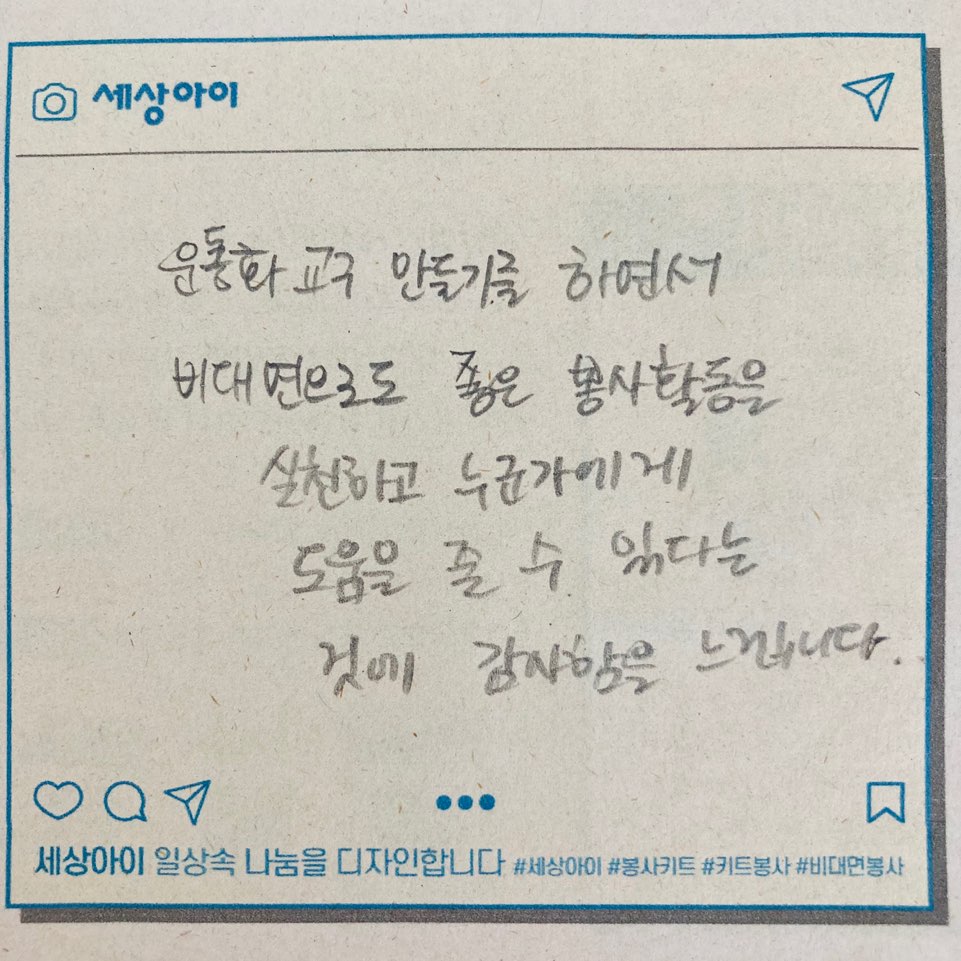 세상아이
운동화 교구 만들기를 하면서
비대면으로도 좋은 봉사활동을
실천하고 누군가에게
도움을 줄 수 있다는
것에 감사함을 느낍니다.
세상아이 일상속 나눔을 디자인합니다 #세상아이 #봉사키트 #키트봉사 #비대면봉사